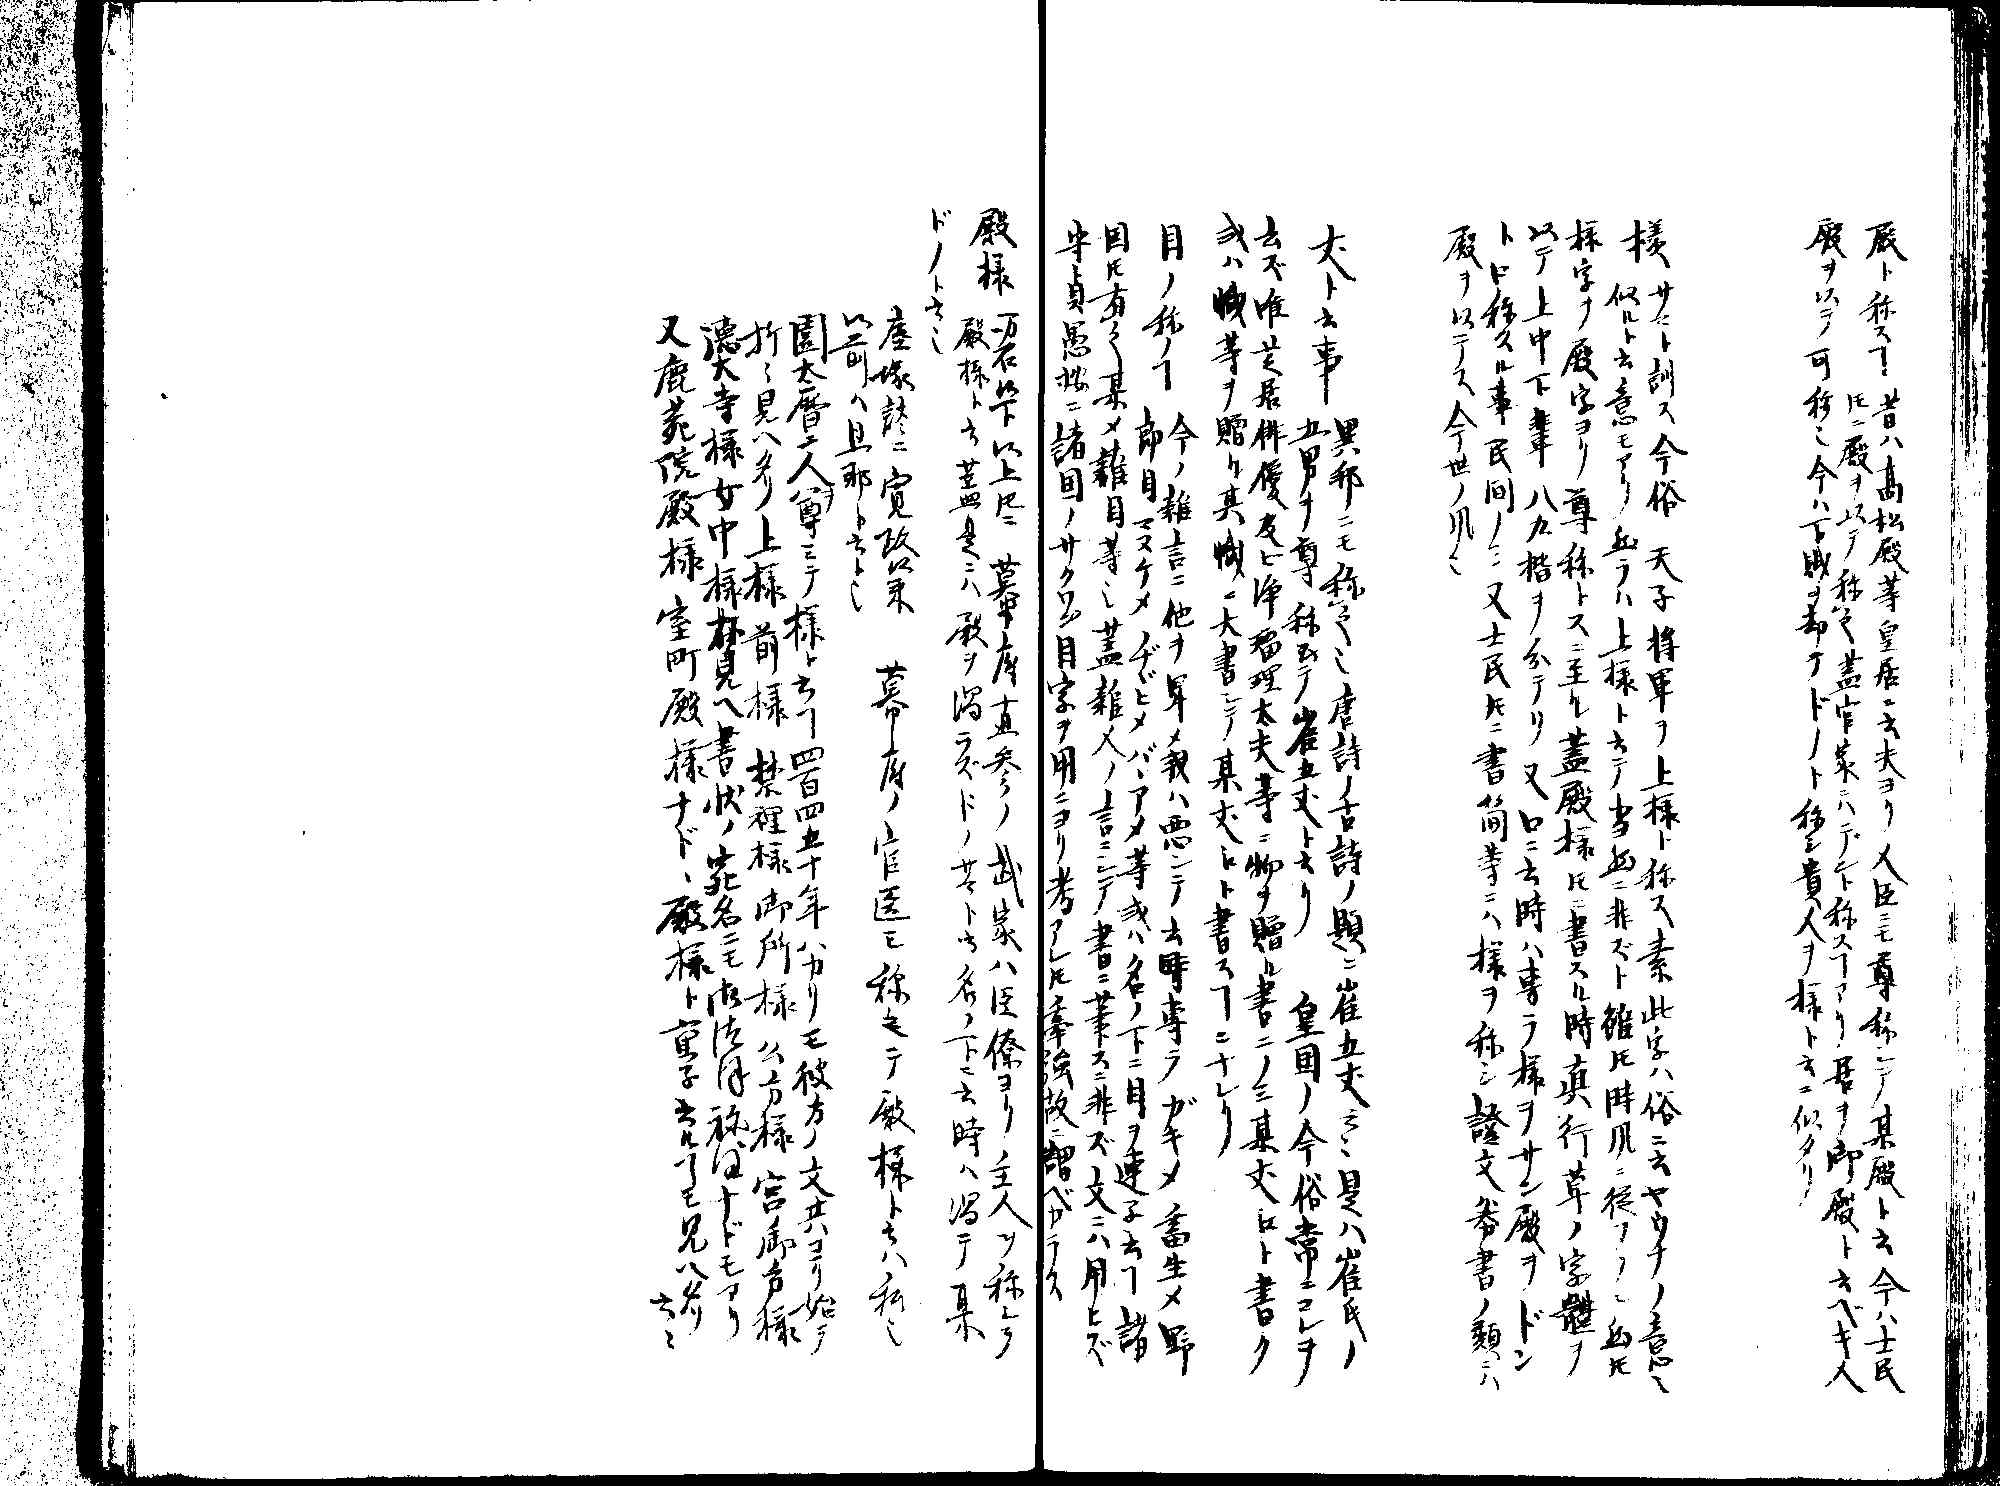 殿ト称スヿ 昔ハ高松殿等皇居ニ云夫ヨリ人臣ニモ尊称シテ某殿ト云今ハ士民
ㇳモニ殿ヲ以テ称之蓋官家ニハデント称スヿアリ居ヲ御殿ト云ベキ人
殿ヲ以テ可称也今ハ下賎ヲ却テドノト称シ貴人ヲ様ト云ニ似タリ
様 サマト訓ス今俗 天子将軍ヲ上様ト称ス素此字ハ俗ニ云ヤウナノ意也
似ルト云意モアリ然ラハ上様ト云テ当然ニ非ズト雖𪜈時風ニ従フノミ然𪜈
様字ヲ殿字ヨリ尊称トスニ至ル蓋殿様𪜈ニ書スル時真行草ノ字體ヲ
以テ上中下輩ノ八九楷ヲ分テリ又口ニ云時ハ専ラ様ヲサン殿ヲドン
ト口称スル事民間ノミ又士民𪜈ニ書簡等ニハ様ヲ称シ證文券書ノ類ニハ
殿ヲ以テス今世ノ風也
丈ト云事 異邦ニモ称之也唐詩ノ古詩ノ題ニ崔五丈云々是ハ崔氏ノ
五男ヲ尊称シテ崔五丈ト云リ 皇国ノ今俗常ニコレヲ
云ズ唯芝居俳優及ビ浄瑠理太夫等ニ物ヲ贈ル書ニノミ某丈江ト書ク
或ハ幟等ヲ贈リ其幟ニ大書シテ某丈江ト書スヿニナレリ
目ノ称ノヿ 今ノ雑言ニ他ヲ卑メ或ハ悪ンテ云時専ラガキメ畜生メ野
郎目マヌケメヂヾヒメバヾアメ等或ハ名ノ下ニ目ヲ連子云ヿ諸
国𪜈有之某メ雑目等也蓋雑人ノ言ニシテ書ニ筆スニ非ズ文ニハ用ヒズ
守貞愚按ニ諸国ノサクワン目字ヲ用ニヨリ考アレ𪜈牽強故ニ謂ベカラス
殿様 一万石以下以上𪜈ニ 幕府直参ノ武家ハ臣僚ヨリ主人ヲ称シテ
殿様ト云蓋是ニハ殿ヲ濁ラズドノ 若ト云名ノ下ニ云時ハ濁テ某
ドノト云也
塵塚談ニ寛政以来 幕府ノ官医モ称シテ殿様ト云ハ私也
以前ハ旦那ト云ト也
園太暦ニ人ヲ尊ミテ様ト云ヿ四百四五十年ハカリモ彼方ノ文共ハヨリ始テ
折々見ヘタリ上様 前様 禁裡様 御所様 公方様 宮御方様
徳大寺様 女中様 抔見ヘ書状ノ宛名ニモ
又鹿苑院殿様 室町殿様ナドヽ殿様ト重子云ルヿモ見ヘタリ
云々